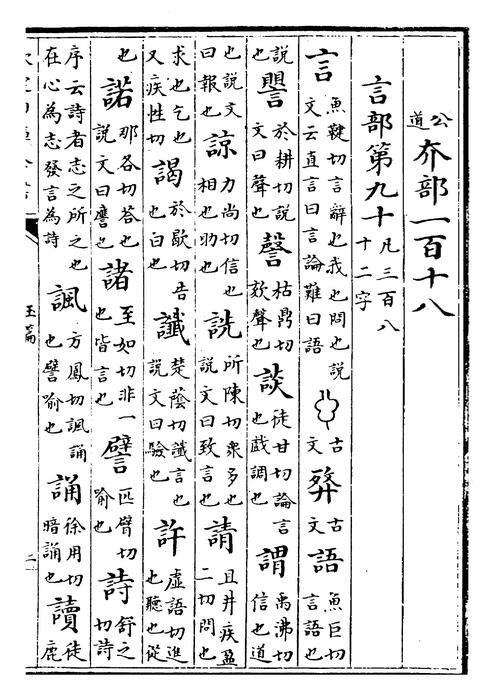 公道 夰部一百十八
言部第九十 凡三百八十二字
言 魚鞬切言辭也我也問也說文云直言曰言論難曰語 古文 古文 語 魚巨切言語也
說也 譻 於耕切說文曰聲也 謦 枯鼎切欬聲也 談 徒甘切論言也戲調也 謂 禹沸切信也道
也說文曰報也 諒 力尚切信也相也助也 詵 所陳切衆多也說文曰致言也 請 且井疾盈二切問也
求也乞也又疾性切 謁 於歇切告也白也 讖 楚蔭切讖言也說文曰驗也 許 虛語切進也聽也從
也 諾 那各切答也說文曰譍也 諸 至如切非一也皆言也 譬 匹臂切喻也 詩 舒之切詩
序云詩者志之所之也在心為志發言為詩 諷 方鳳切諷誦也譬喻也 誦 徐用切暗誦也 讀 徒鹿
玉篇